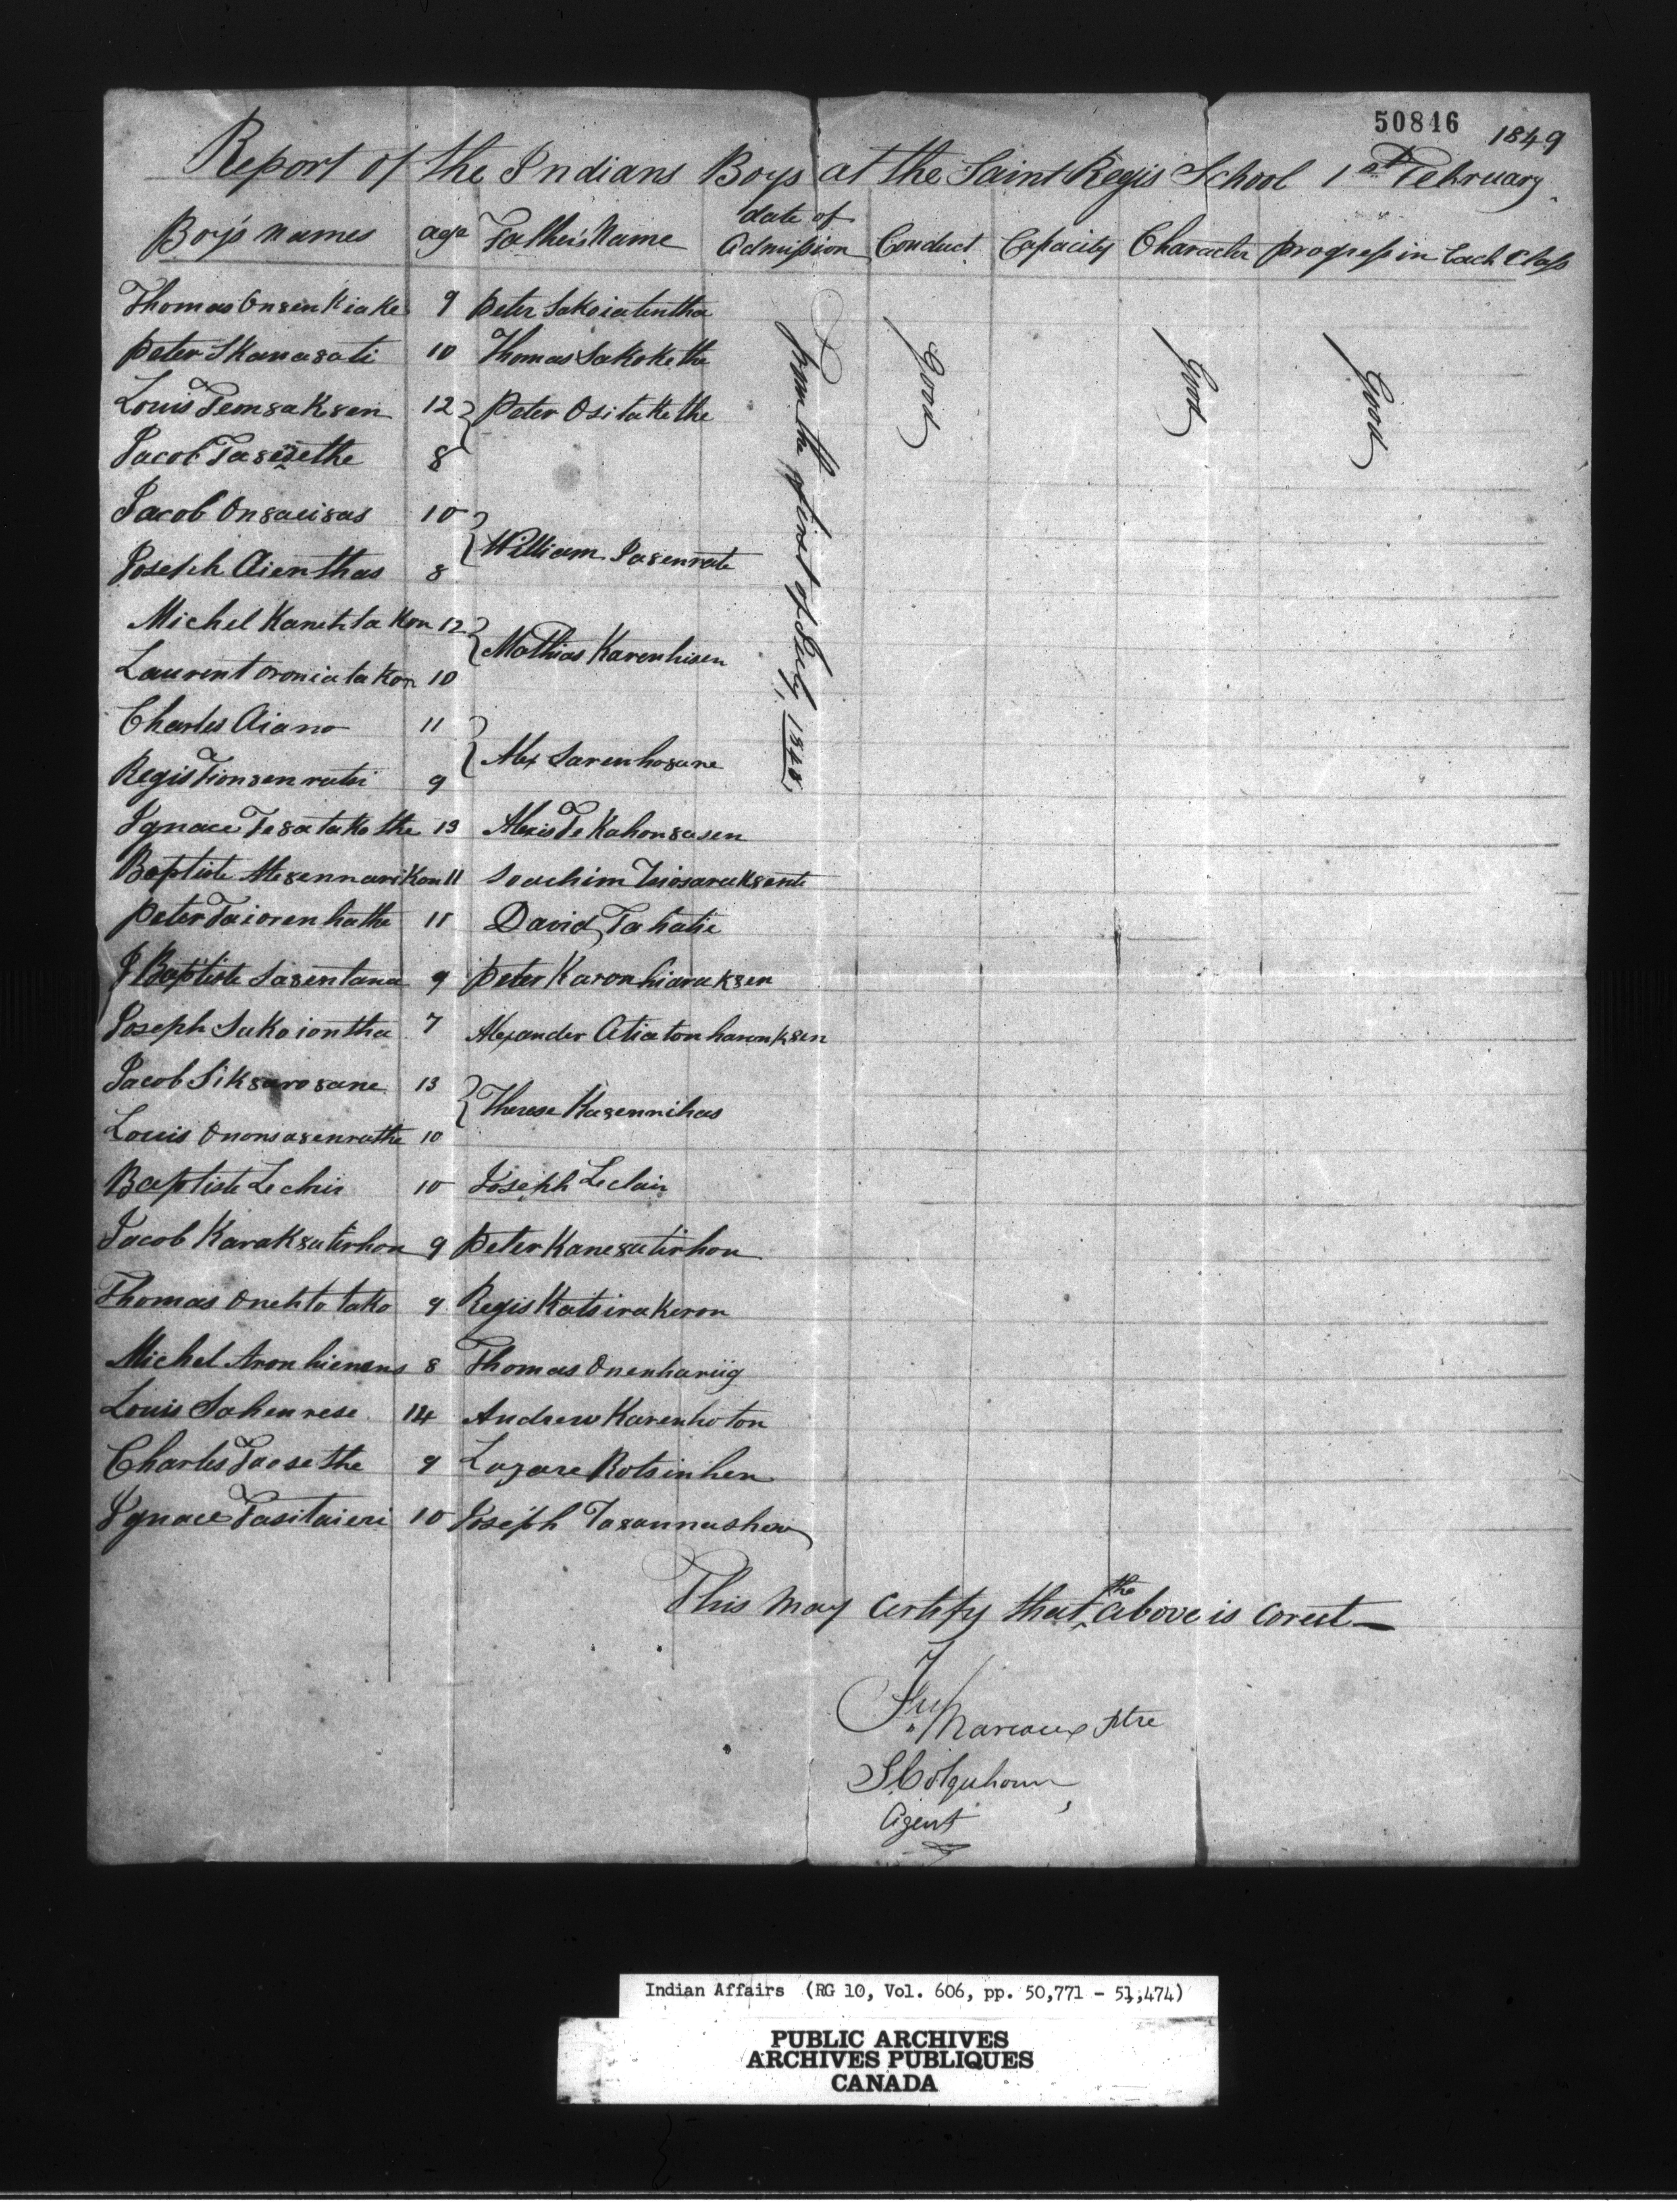 50846 1849
Report of the Indians Boys at the Saint Regis School 1st February
Boy's names age Father's Name date of Admission Conduct Capacity Character progress in Each Class
Thomas Onsenkiake 9 peter Sakoiatentha
peter Skanasati 10 Thomas Sakokethe
Louis Temsaksen 12 } peter Ositakethe
Jacob 8
Jacob Onsaiisas 10
} William Sasenrate
Joseph Aienthas 8
Michel Kanehtakon 12
} Mathias Karenhisen
Laurent oroniatakon 10
Charles Aiano 11
} Alex Sarenhosane
Regis Tionsenrates 9
Ignace Tesatakothe 13 Alexis Tekahonsasen
Baptiste Mesennarikon 11 Soachim
peter Taiorenhathe 11 David Tahatie
J Baptiste Sasentana 9 peter Karonhiaraksen
Joseph Sakoiontha 7 Alexander Atiatonharonksen
Jacob Siksarosane 13
} Therese Kasennihas
Louis Ononsasenrathe 10
Baptiste 10 Joseph Leclair
Jacob Karaksatirhon 9 peter Kanesatirhon
Thomas Onehtotako 9 Regis Katsirakeron
Michel Aronhienens 8 Thomas Onenhariig
Louis Sohenrese 14 Andrew Karenhoton
Charles Taosethe 9 Lazare Rotsinhen
Ignace Tasitaieri 10 Joseph Tasannashen
from the first of July 1848
Good
Good
Good
This may certify that the above is corect
Frs Marcoux ptre
S Colquhoun
Agent
Indian Affairs (RG 10, Vol. 606, pp. 50,771 - 51,474)
PUBLIC ARCHIVES
ARCHIVES PUBLIQUES
CANADA